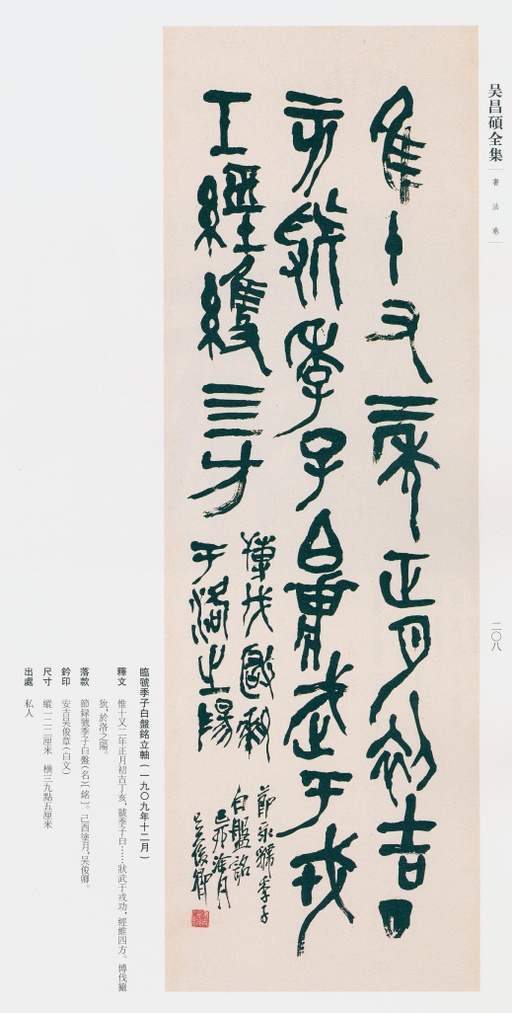 吴昌碩全集 書法卷
二〇八
隹十又二年正月初吉丁
亥虢季子白武于戎
工經維四方
博伐玁狁
于洛之陽
節录虢季子
白盤銘
己酉涂月
吴俊卿
臨虢季子白盤銘立軸(一九〇九年十二月)
釋文 惟十又二年正月初吉丁亥,虢季子白……狀武于戎功,經維四方。博伐玁
狁,於洛之陽。
落款 節録虢季子白盤(名)〔銘〕。己酉塗月,吴俊卿。
鈐印 安吉吴俊章(白文)
尺寸 縱一二二厘米 橫三九點五厘米
出處 私人